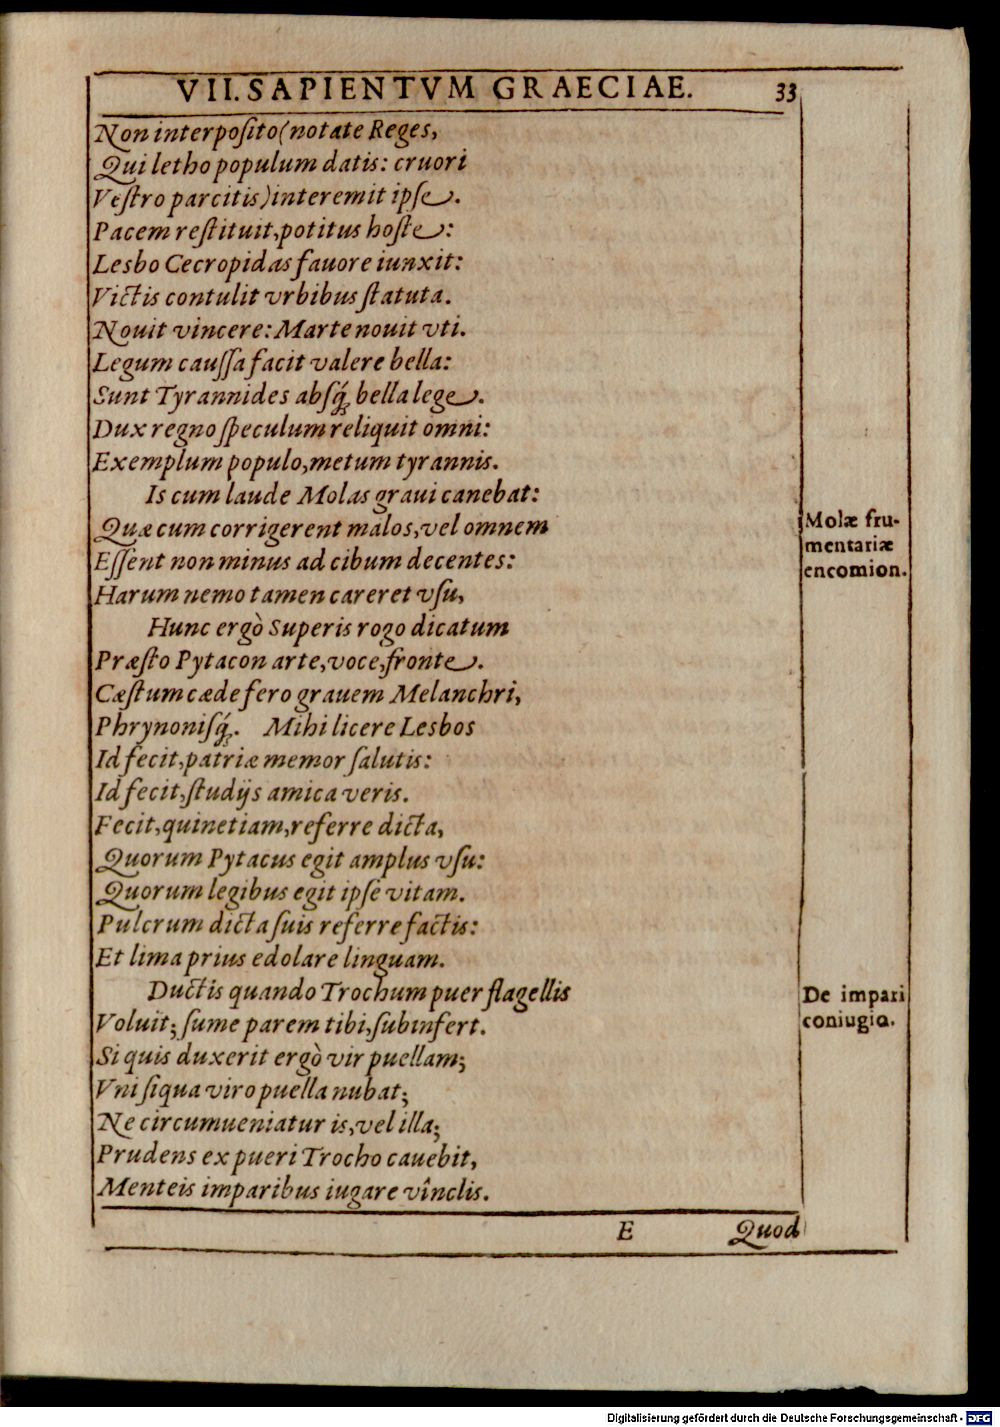 VII. SAPIENTVM GRAECIAE. 33
Non interposito (notate Reges,
Qui letho populum datis: cruori
Vestro parcitis) interemit ipse.
Pacem restituit, potitus hoste:
Lesbo Cecropidas fauore iunxit:
Victis contulit vrbibus statuta.
Nouit vincere: Marte nouit vti.
Legum caussa facit valere bella:
Sunt Tyrannides absq́; bella lege.
Dux regno speculum reliquit omni:
Exemplum populo, metum tyrannis.
Is cum laude Molas graui canebat:
Quæ cum corrigerent malos, vel omnem
Essent non minus ad cibum decentes:
Harum nemo tamen careret vsu,
Molæ fru-
mentariæ
encomion.
Hunc ergò Superis rogo dicatum
Præsto Pytacon arte, voce, fronte.
Cæstum cæde fero grauem Melanchri,
Phrynonisq́;. Mihi licere Lesbos
Id fecit, patriæ memor salutis:
Id fecit, studijs amica veris.
Fecit, quinetiam, referre dicta,
Quorum Pytacus egit amplus vsu:
Quorum legibus egit ipse vitam.
Pulcrum dicta suis referre factis:
Et lima prius edolare linguam.
Ductis quando Trochum puer flagellis
Voluit; sume parem tibi, subinfert.
Si quis duxerit ergò vir puellam;
Vni siqua viro puella nubat;
Ne circumueniatur is, vel illa;
Prudens ex pueri Trocho cauebit,
Menteis imparibus iugare vînclis.
De impari
coniugio.
E Quod
Digitalisierung gefördert durch die Deutsche Forschungsgemeinschaft - DFG